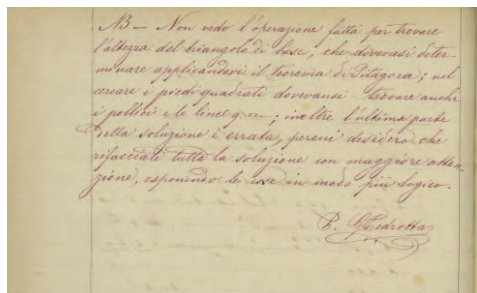 NB — Non vedo l'operazione fatta per trovare
l'altezza del triangolo di base, che dovevasi deter-
minare applicandovi il teorema di Pitagora; nel
cercare i piedi quadrati dovevansi trovare anche
i pollici e le linee q. ; inoltre l'ultima parte
della soluzione è errata, perciò desidero che
rifacciate tutta la soluzione con maggiore atten-
zione, esponendo le cose in modo più logico.
P.